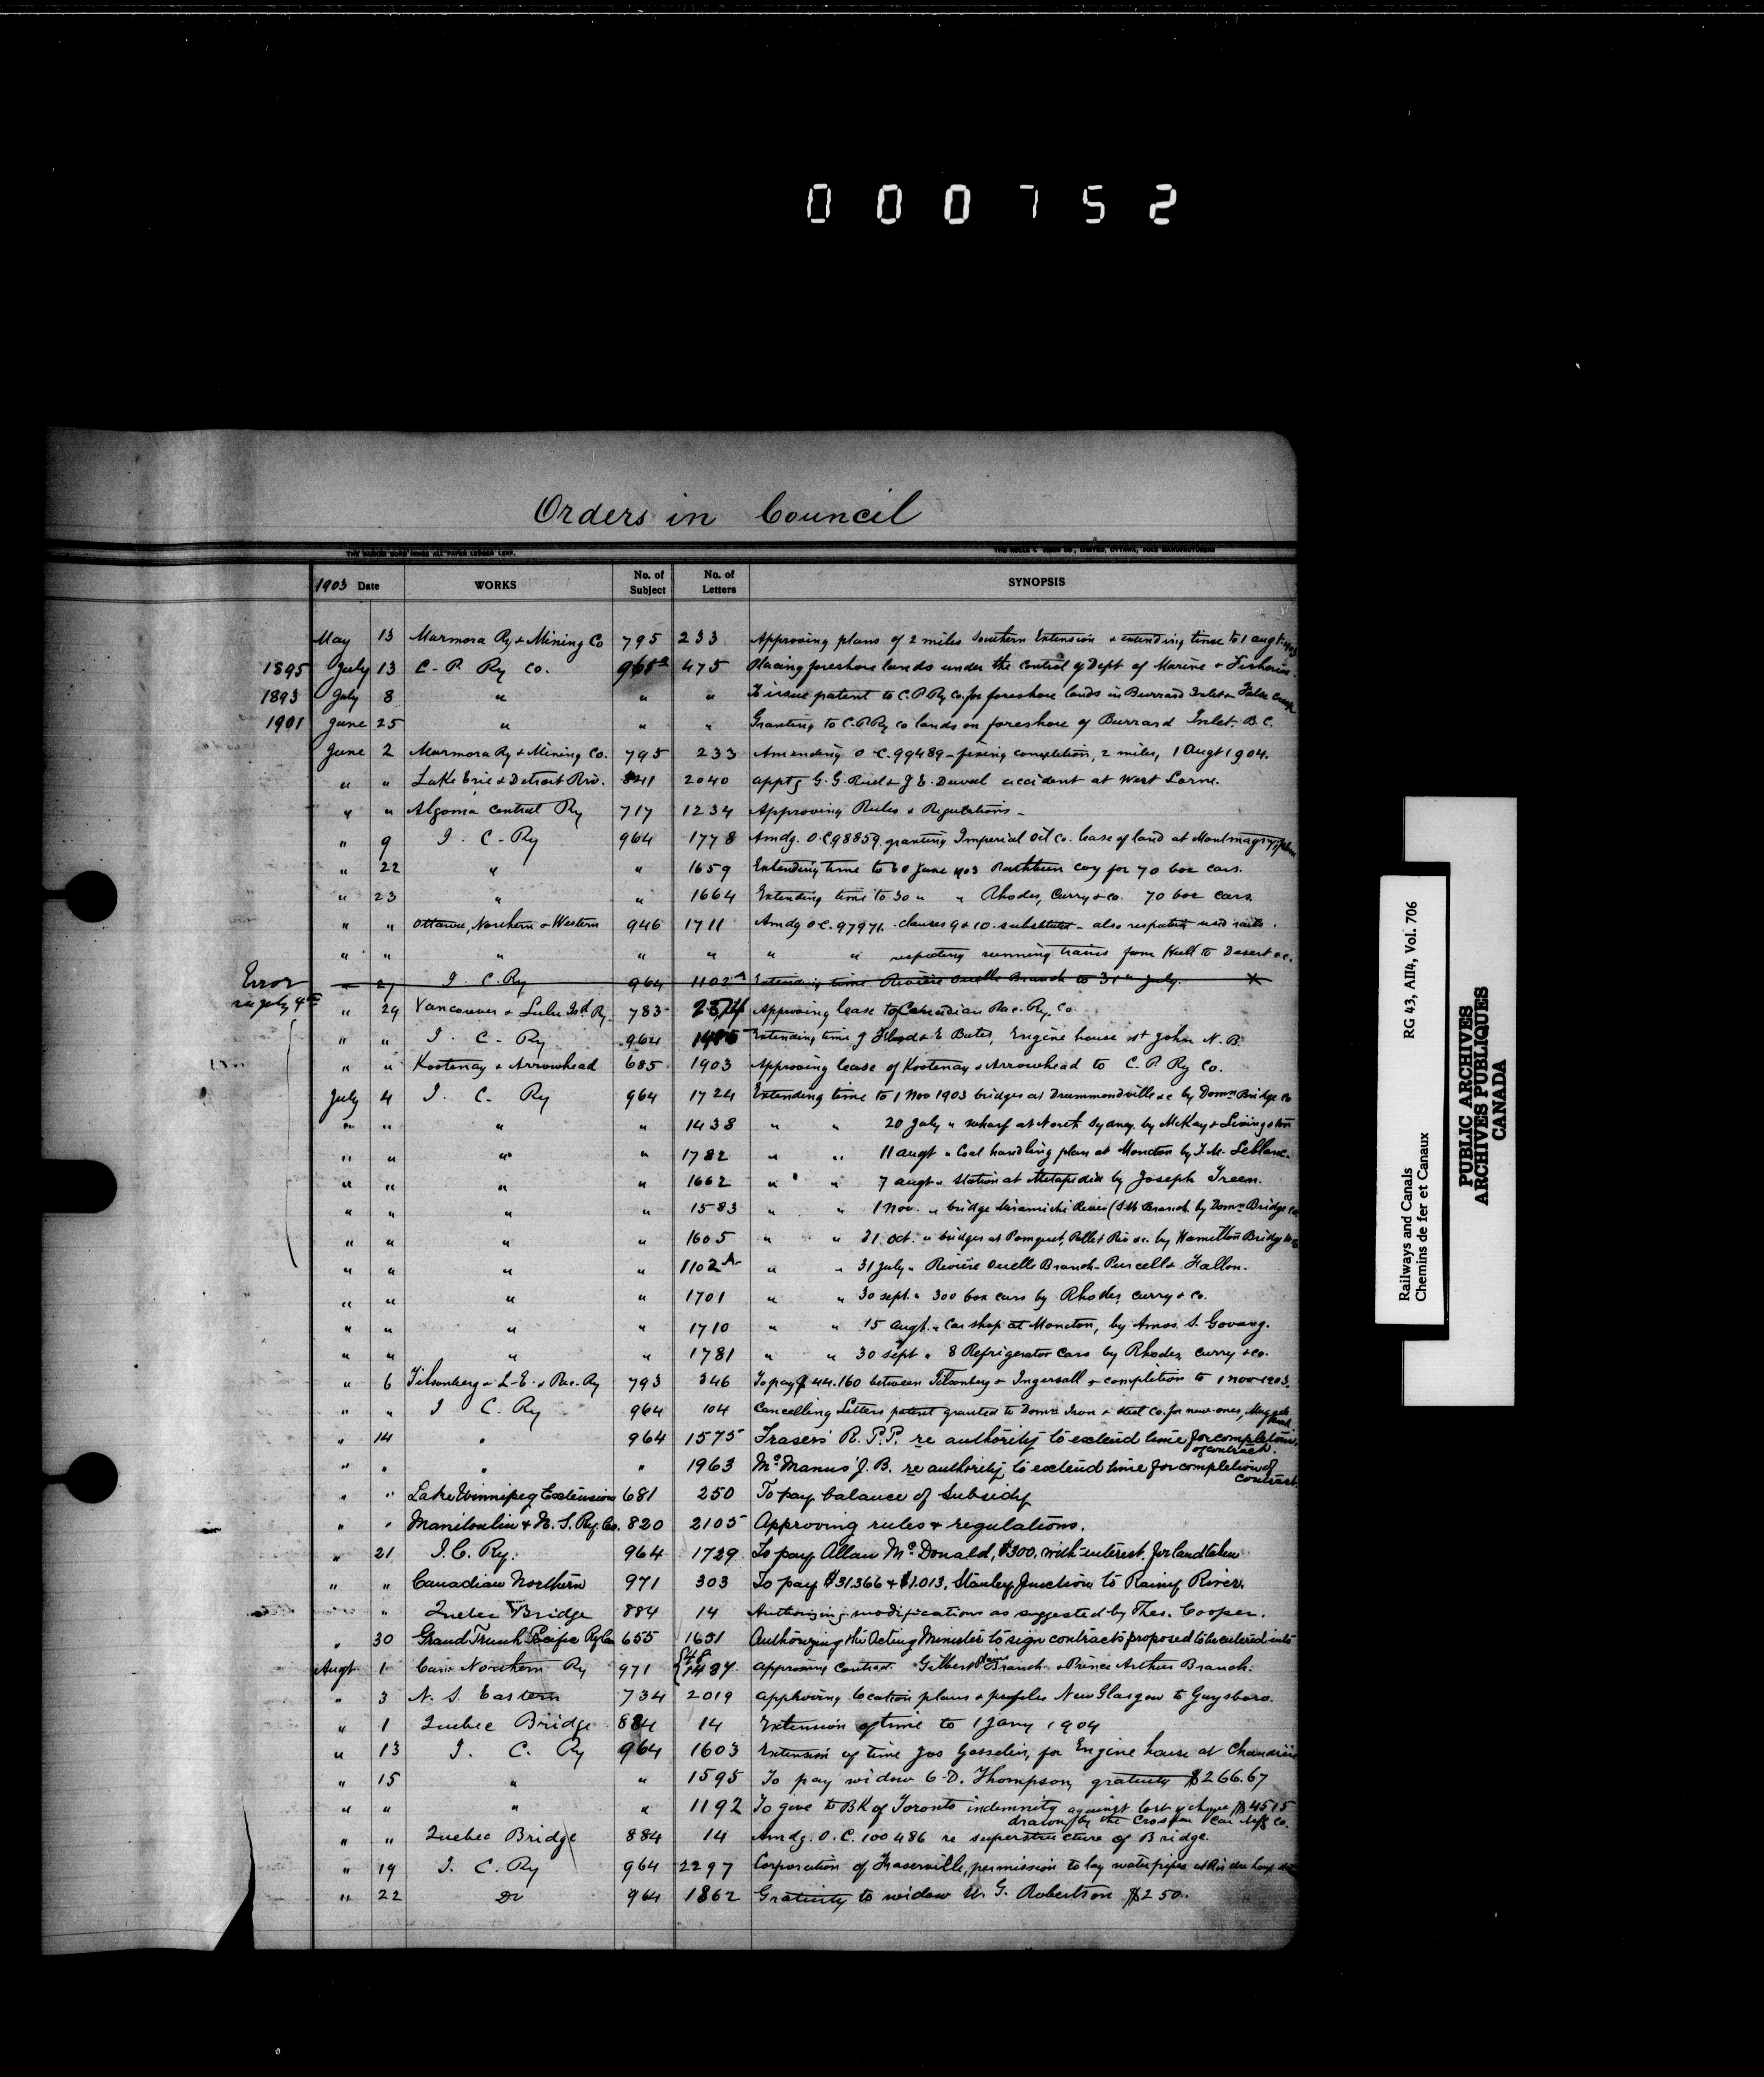 000752
Orders in Council
1903 Date WORKS No. of Subject No. of Letters SYNOPSIS
May 13 Marmora Ry & Mining Co 795 233 Approving plans of 2 miles Southern Extension & extending time to 1 augt. 1903
1895 July 13 C. P. Ry Co. 968 475 Placing foreshore lands under the control of Dept of Marine & Fisheries.
1893 July 8 " " " To issue patent to C.P.Ry Co. for foreshore lands in Burrard Inlet & False Creek
1901 June 25 " " " Granting to C.P.Ry Co lands on foreshore of Burrard Inlet. B.C.
June 2 Marmora Ry & Mining Co. 795 233 Amending O.C. 99489 - fixing completion, 2 miles, 1 Augt 1904.
" " Lake Erie & Detroit Riv. 841 2040 apptg G. G. Ruel & J. E. Duval accident at West Lorne.
" " Algoma Central Ry 717 1234 Approving Rules & Regulations -
" 9 I. C. Ry 964 1778 Amdg. O.C. 98859 granting Imperial Oil Co. lease of land at Montmagny
" 22 " " 1659 Extending time to 30 June 1903 Rathbun coy for 70 box cars.
" 23 " " 1664 Extending time to 30 " " Rhodes, Curry & co. 70 box cars.
" " Ottawa, Northern & Western 946 1711 Amdg O.C. 97971. clauses 9 & 10 substituted - also respecting used rails.
" " " " " " " respecting running trains from Hull to Desert &c.
Error 27 I. C. Ry 964 1102 A Extending time Rivière Ouelle Branch to 31st July. X
see July 4th " 29 Vancouver & Lulu Isd Ry. 783 2374 Approving lease to Canadian Pac. Ry. Co.
" " I. C. Ry 964 1485 Extending time of Flood & E Bates, Engine house St John N. B.
" " Kootenay & Arrowhead 685 1903 Approving lease of Kootenay & Arrowhead to C. P. Ry Co.
July 4 I. C. Ry 964 1724 Extending time to 1 Nov 1903 bridges at Drummondville &c by Domn Bridge Co
" " " " 1438 " " 20 July " wharf at North Sydney by McKay & Livingston
" " " " 1782 " " 11 augt " Coal handling plan at Moncton by F. M. Leblanc.
" " " " 1662 " " 7 augt " Station at Metapedia by Joseph Green.
" " " " 1583 " " 1 Nov. " bridge Miramichi River (S W Branch by Domn Bridge Co
" " " " 1605 " " 31 Oct. " bridges at Pomquet, Pallet Riv &c. by Hamilton Bridge
" " " " 1102 A " " 31 July " Rivière Ouelle Branch - Purcell & Fallon.
" " " " 1701 " " 30 sept. " 300 box cars by Rhodes, Curry & co.
" " " " 1710 " " 15 augt. " Car shop at Moncton, by Amos. S. Govang.
" " " " 1781 " " 30 sept " 8 Refrigerator Cars by Rhodes, Curry & co.
" 6 Tilsonberg & L. E. & Pac. Ry 793 346 To pay $ 44.160 between Tilsonberg & Ingersall & completion to 1 nov 1903.
" " I C. Ry 964 104 Cancelling Letters patent granted to Domn Iron & steel Co. for new ones,
" 14 " 964 1575 Frasers R. P. P. re authority to extend time for completion of contract.
" " " " 1963 McManus J. B. re authority to extend time for completion of contract.
" " Lake Winnipeg Extension 681 250 To pay balance of Subsidy
" " Manitoulin & N. S. Ry. Co. 820 2105 Approving rules & regulations.
" 21 I. C. Ry. 964 1729 To pay Allan McDonald, $300. with interest, for land taken
" " Canadian Northern 971 303 To pay $31.366 + $1.013, Stanley Junction to Rainy River.
" Quebec Bridge 884 14 Authorising modifications as suggested by Theo. Cooper.
" 30 Grand Trunk Pacific Ry Co 655 1651 Authorizing the Acting Minister to sign contracts proposed to be entered into
Augt 1 Can. Northern Ry 971 {48 1487 approving contract. Gilbert Plains Branch & Prince Arthur Branch.
" 3 N. S. Eastern 734 2019 approving location plans & profiles New Glasgow to Guysboro.
" 1 Quebec Bridge 884 14 Extension of time to 1 Jany 1904
" 13 I. C. Ry 964 1603 Extension of time Jos Gosselin, for Engine house at Chaudière
" 15 " " 1595 To pay widow C. D. Thompson, gratuity $266.67
" " " " 1192 To give to BK of Toronto indemnity against lost cheque $4515 drawn by the Crossen Car Mfg Co.
" " Quebec Bridge 884 14 Amdg. O. C. 100486 re superstructure of Bridge.
" 19 I. C. Ry 964 2297 Corporation of Fraserville, permission to lay water pipes at Riv du Loup
" 22 Do 964 1862 Gratuity to widow W. G. Robertson $250.
Railways and Canals RG 43, AII4, Vol. 706
Chemins de fer et Canaux
PUBLIC ARCHIVES
ARCHIVES PUBLIQUES
CANADA